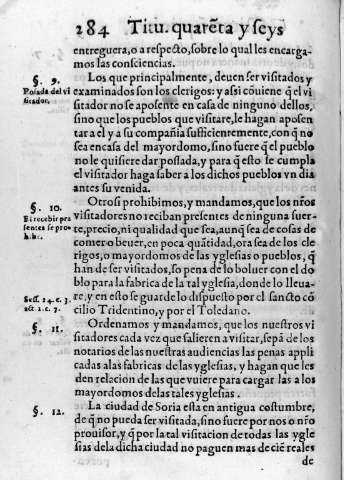 284 Titu. quarẽta y seys
entreguera, o a respecto, sobre lo qual les encarga-
mos las consciencias.
§. 9.
Posada del vi
sitador.
Los que principalmente, deuen ser visitados y
examinados son los clerigos: y assi cõuiene q̃ el vi
sitador no se aposente en casa de ninguno dellos,
sino que los pueblos que visitare, le hagan aposen
tar a el y a su compañia sufficientemente, con q̃ no
sea en casa del mayordomo, sino fuere q̃ el pueblo
no le quisiere dar possada, y para q̃ esto se cumpla
el visitador haga saber a los dichos pueblos vn dia
antes su venida.
§. 10.
El recebir pre
sentes se pro
hibe.
Otrosi prohibimos, y mandamos, que los nr̃os
visitadores no reciban presentes de ninguna suer-
te, precio, ni qualidad que sea, aunq̃ sea de cosas de
comer o beuer, en poca quãtidad, ora sea de los cle
rigos, o mayordomos de las yglesias o pueblos, q̃
han de ser visitados, so pena de lo boluer con el do
blo para la fabrica de la tal yglesia, donde lo lleua-
Sess. 24. c. 3.
act. 2. c. 7.
re, y en esto se guarde lo dispuesto por el sancto cõ
cilio Tridentino, y por el Toledano.
§. 11.
Ordenamos y mandamos, que los nuestros vi
sitadores cada vez que salieren a visitar, sepã de los
notarios de las nuestras audiencias las penas appli
cadas a las fabricas de las yglesias, y hagan que les
den relacion de las que vuiere para cargar las a los
mayordomos de las tales yglesias.
§. 12.
La ciudad de Soria esta en antigua costumbre,
de q̃ no pueda ser visitada, sino fuere por nos o nr̃o
prouisor, y q̃ por la tal visitacion de todas las ygle
sias de la dicha ciudad no paguen mas de ciẽ reales
de